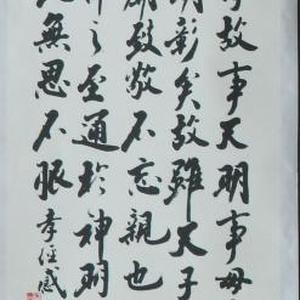 孝故事天明事母
明彰矣故雖天子
廟致敬不忘親也
之至通於神明
無思不服 孝經感